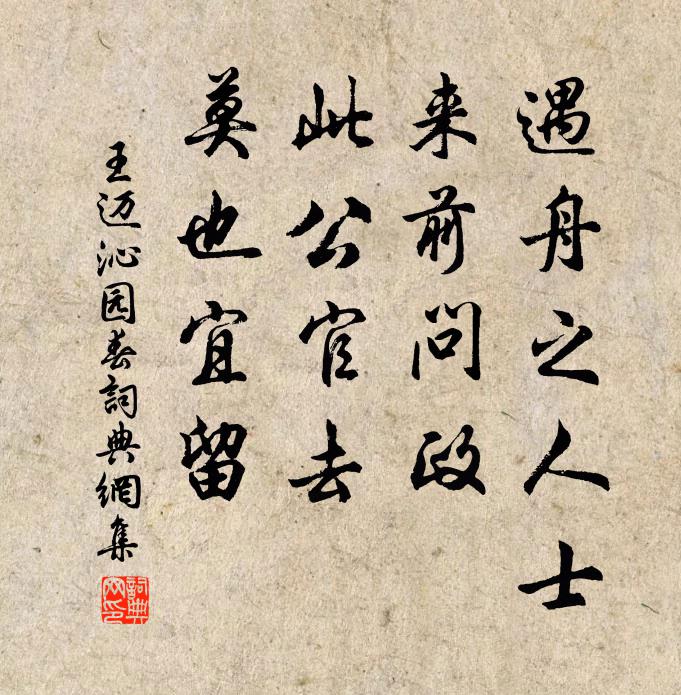 遇舟之人士
来前问政
此公官去
莫也宜留
王迈沁园春詞典網集
詞典
网印